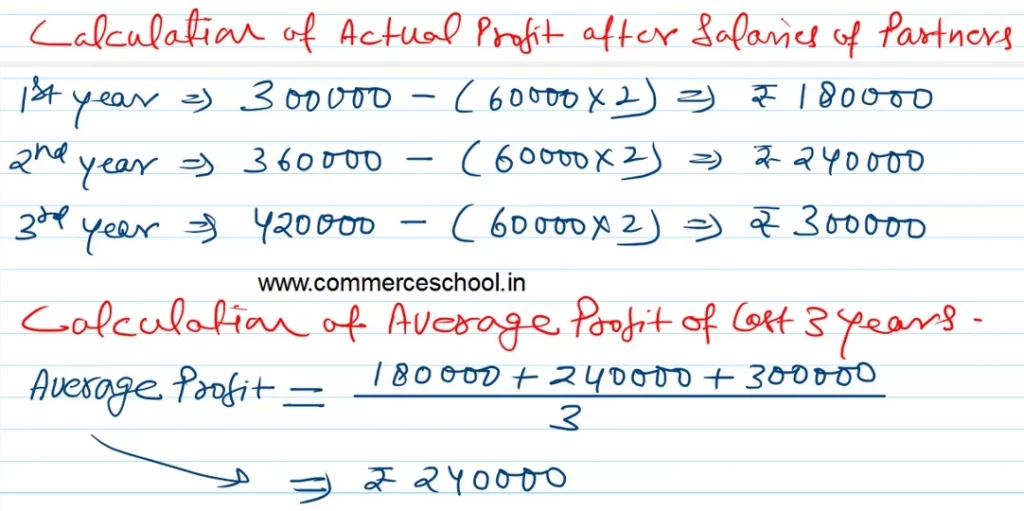 Calculation of Actual Profit after Salaries of Partners
1st year ⇒ 300000 - (60000×2) ⇒ ₹ 180000
2nd year ⇒ 360000 - (60000×2) ⇒ ₹ 240000
3rd year ⇒ 420000 - (60000×2) ⇒ ₹ 300000
www.commerceschool.in
Calculation of Average Profit of Last 3 years -
Average Profit = 180000 + 240000 + 300000
3
⇒ ₹ 240000